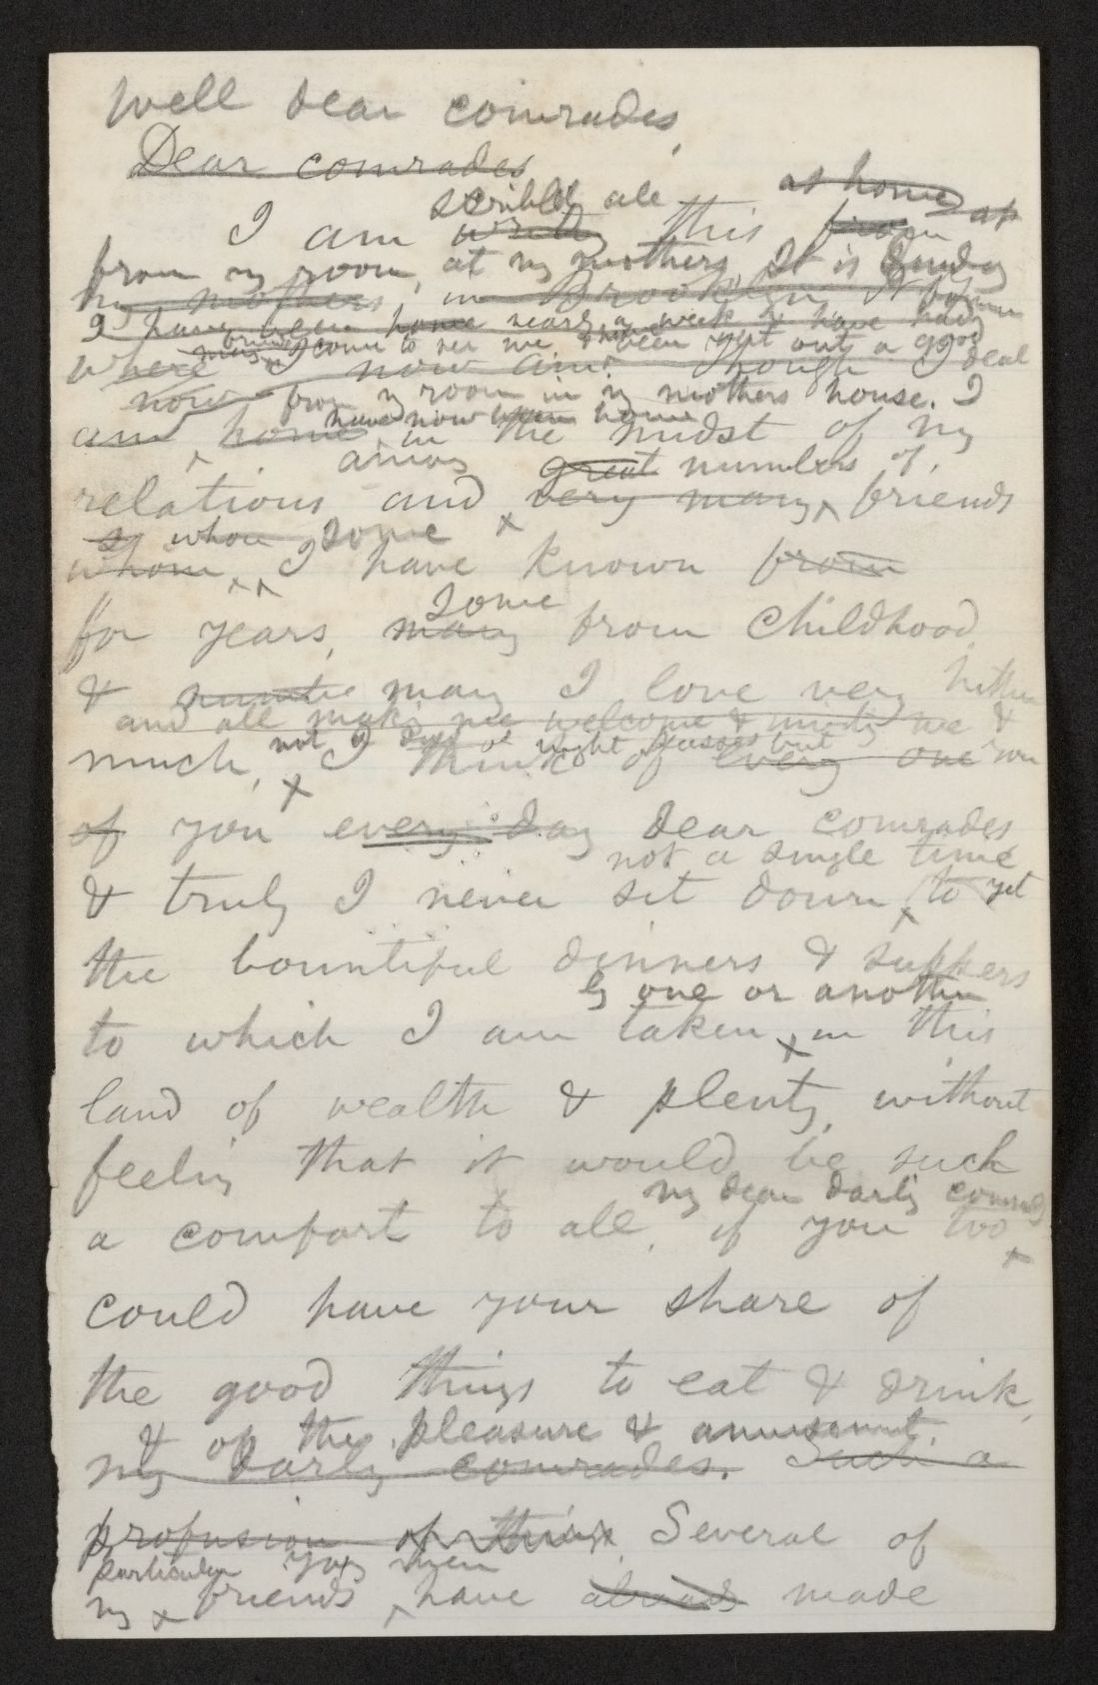 Well dear comrades,
Dear comrades
scribbl all at home at
I am this from
from my room, at my mothers, It is Sunday
my mothers, in Brooklyn, N
I have been home nearly a week & have had
friends come to see me & been out a good
where I now am. Though I deal
now from my room in my mothers house. I
have now been home
and home in the midst of my
among great numbers of
relations and very many friends
whom some
whom I have known from
for years, some
many from childhood,
& many I love very
and all make me welcome &
much, I think of every one
not a night passes but
of you every day dear comrades
not a single time
& truly I never sit down to yet
the bountiful dinners & suppers
by one or another
to which I am taken in this
land of wealth & plenty, without
feeling that it would be such
my dear darling comrades
a comfort to all, if you too
could have your share of
the good things to eat & drink,
& of the pleasure & amusement.
my darling comrades. Such a
profusion of things. Several of
particular young men
my friends have already made